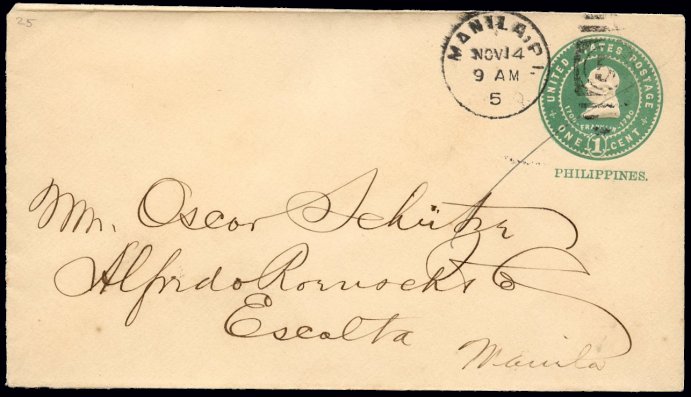 25
MANILA, P.I.
NOV 14
9 AM
5
UNITED STATES POSTAGE
1706 FRANKLIN 1790
ONE 1 CENT
PHILIPPINES.
Mr. Oscar Schütze
Alfredo Roensch & Co
Escolta
Manila